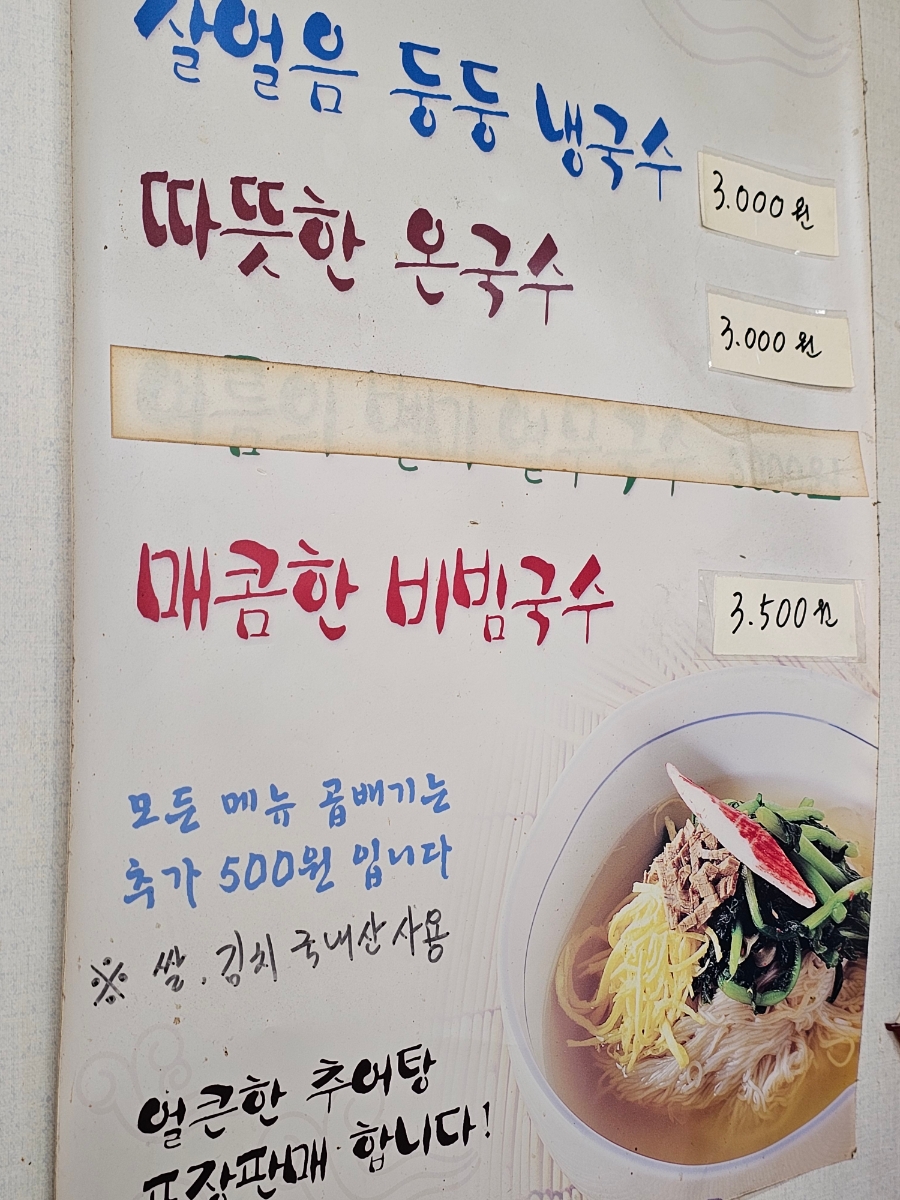 살얼음 둥둥 냉국수 3.000원
따뜻한 온국수 3.000원
매콤한 비빔국수 3.500원
모든 메뉴 곱배기는
추가 500원 입니다
※ 쌀. 김치 국내산 사용
얼큰한 추어탕
포장판매 합니다!